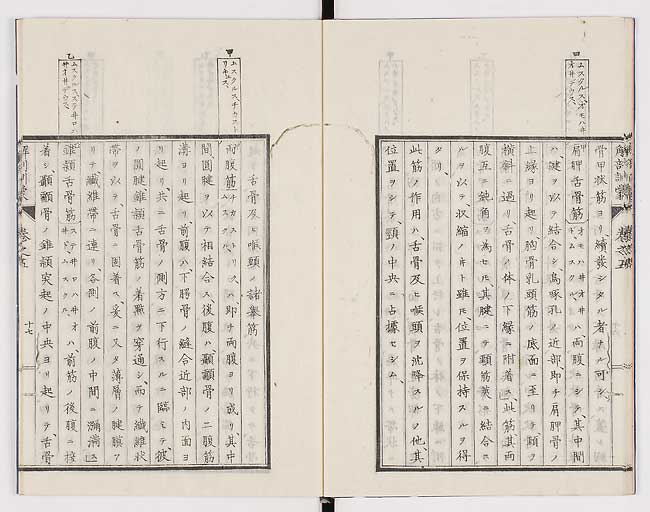 甲
ムスクルス、オモハヰオヰデウス、
解剖訓蒙
卷之五
骨甲状筋ヨリ續發シタル者ナル可シ、
肩胛舌骨筋オモハヰオヰドムスクル、ハ兩腹ニシテ、其中間
ハ腱ヲ以テ結合シ、烏啄孔ノ近部、即チ肩胛骨ノ
上緣ヨリ起リ、胸骨乳頭筋ノ底面ニ至リテ、頸ヲ
橫斜ニ過リ、舌骨ノ体ノ下緣ニ附着ス、此筋其兩
腹互ニ鈍角ヲ為セルハ、其腱ニテ頸筋葉ニ結合ス
ルヲ以テ、收縮ノキト雖モ、位置ヲ保持スルヲ得
タリ、
此筋ノ作用ハ、舌骨及ヒ喉頭ヲ沈降スルノ他、其
位置ヲシテ、頸ノ中央ニ占據セシム、
舌骨及ヒ喉頭ノ諸擧筋
ムスクルス、チカストリキュス、
兩腹筋チカストリスハ即チ兩腹ヨリ成リ、其中
間圓腱ヲ以テ相結合ス、後腹ハ、顳顬骨ノ二腹筋
溝ヨリ起リ、前腹ハ下腭骨ノ縫合近部ノ内面ヨ
リ起リ、共ニ舌骨ノ側方ニ下行スルニ臨ミテ、彼
ノ圓腱錐顬舌骨筋ノ着點ヲ穿通シ、而テ纖維狀
帶ヲ以テ、舌骨ニ固着ス、又タ薄層ノ腱膜ア
リテ、纖維帶ニ連リ、各側ノ前腹ノ中間ニ瀰滿ス
乙
ムスクルス、ステヰロハヰオヰデウス、
錐顬舌骨筋ステヰロハヰオヰドムスクルハ、前筋ノ後腹ニ接
着シ、顳顬骨ノ錐顬突起ノ中央ヨリ起リテ舌骨
解剖訓蒙
卷之五
十七